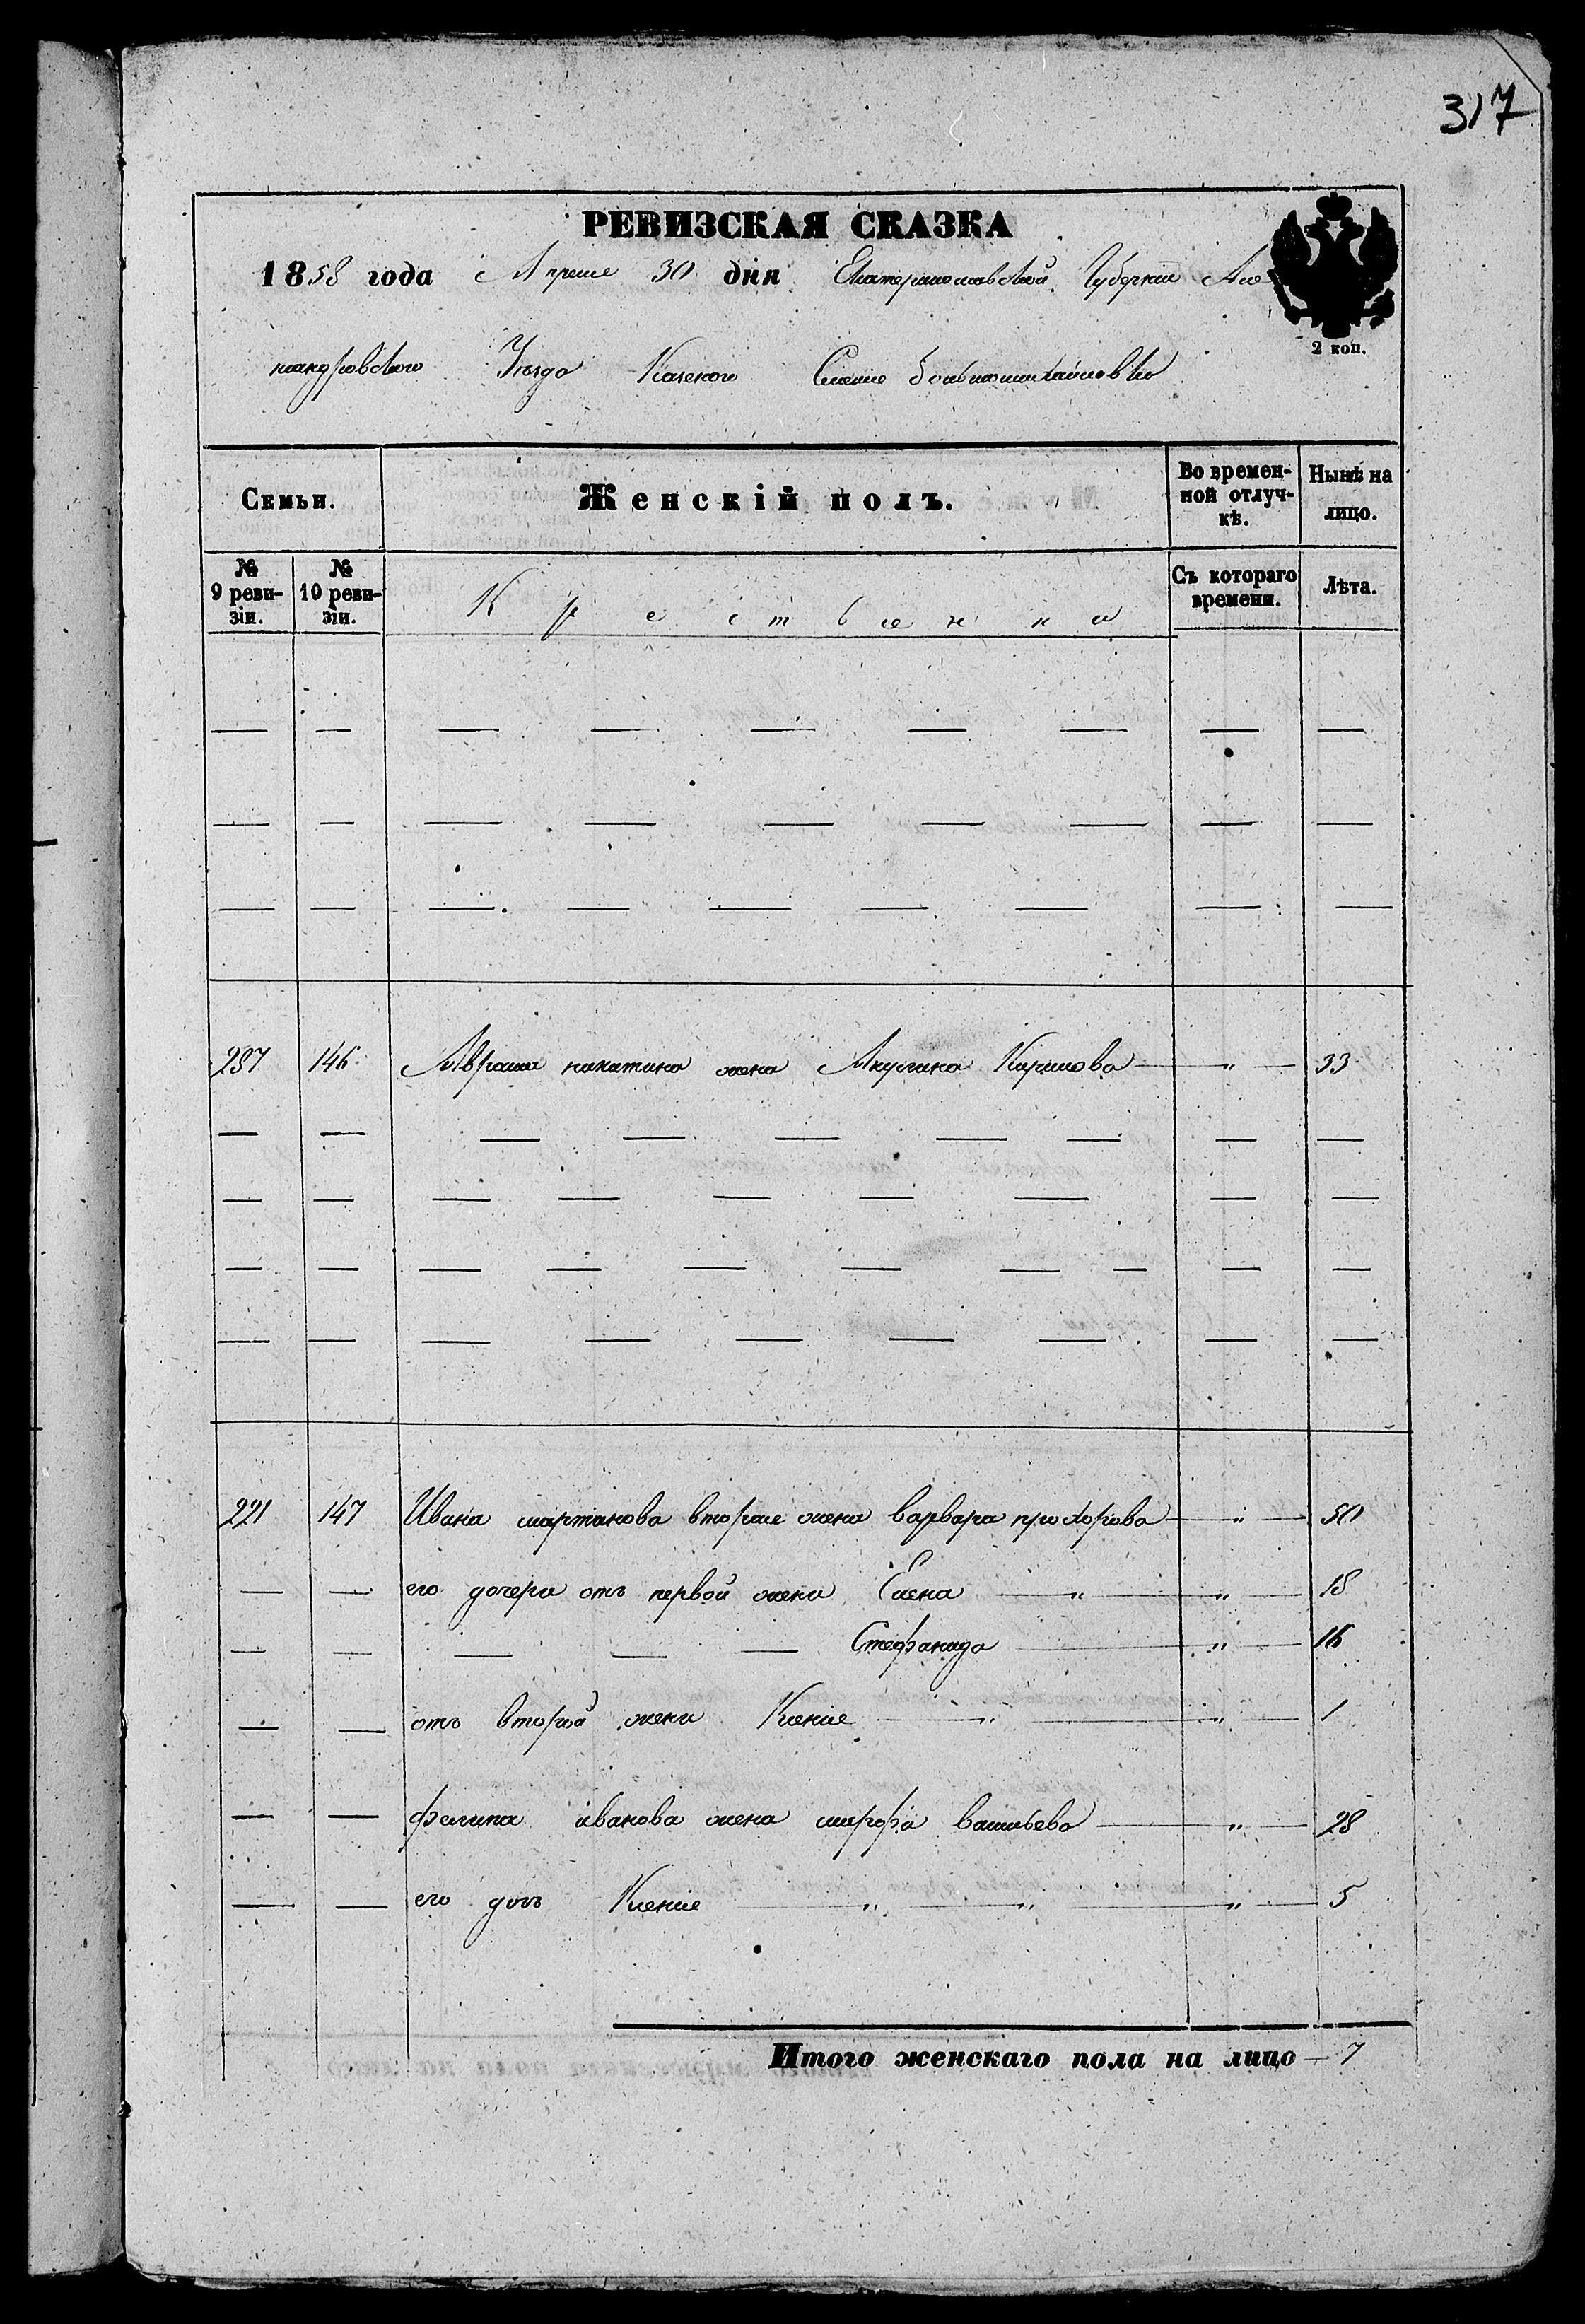 317
РЕВИЗСКАЯ СКАЗКА
1858 года Апреля 30 дня Екатеринославской Губернии Алек
2 коп.
сандровского Уезда Казеного Селение Большомихайловки
Семьи. Женскій полъ. Во времен-ной отлуч-кѣ. Нынѣ на лицо.
№ 9 реви-зіи. № 10 реви-зіи. Крестьянки Съ котораго времени. Лѣта.
— — — — — — — — —
— — — — — — — — —
— — — — — — — — —
237 146 Аврама никитина жена Акулина Карпова — " — 33
— — — — — — — — —
— — — — — — — — —
— — — — — — — — — —
— — — — — — — — —
221 147 Ивана мартинова вторая жена варвара прохорова — " — 50
— — его дочери отъ первой жени Елена — " — " — 18
— — — — — Стефанида — " — 16
— — отъ второй жени Ксения — " — " — 1
— — филипа иванова жена марфа васильева — " — 28
— — его дочь Ксения — " — " — " — 5
Итого женскаго пола на лицо — 7